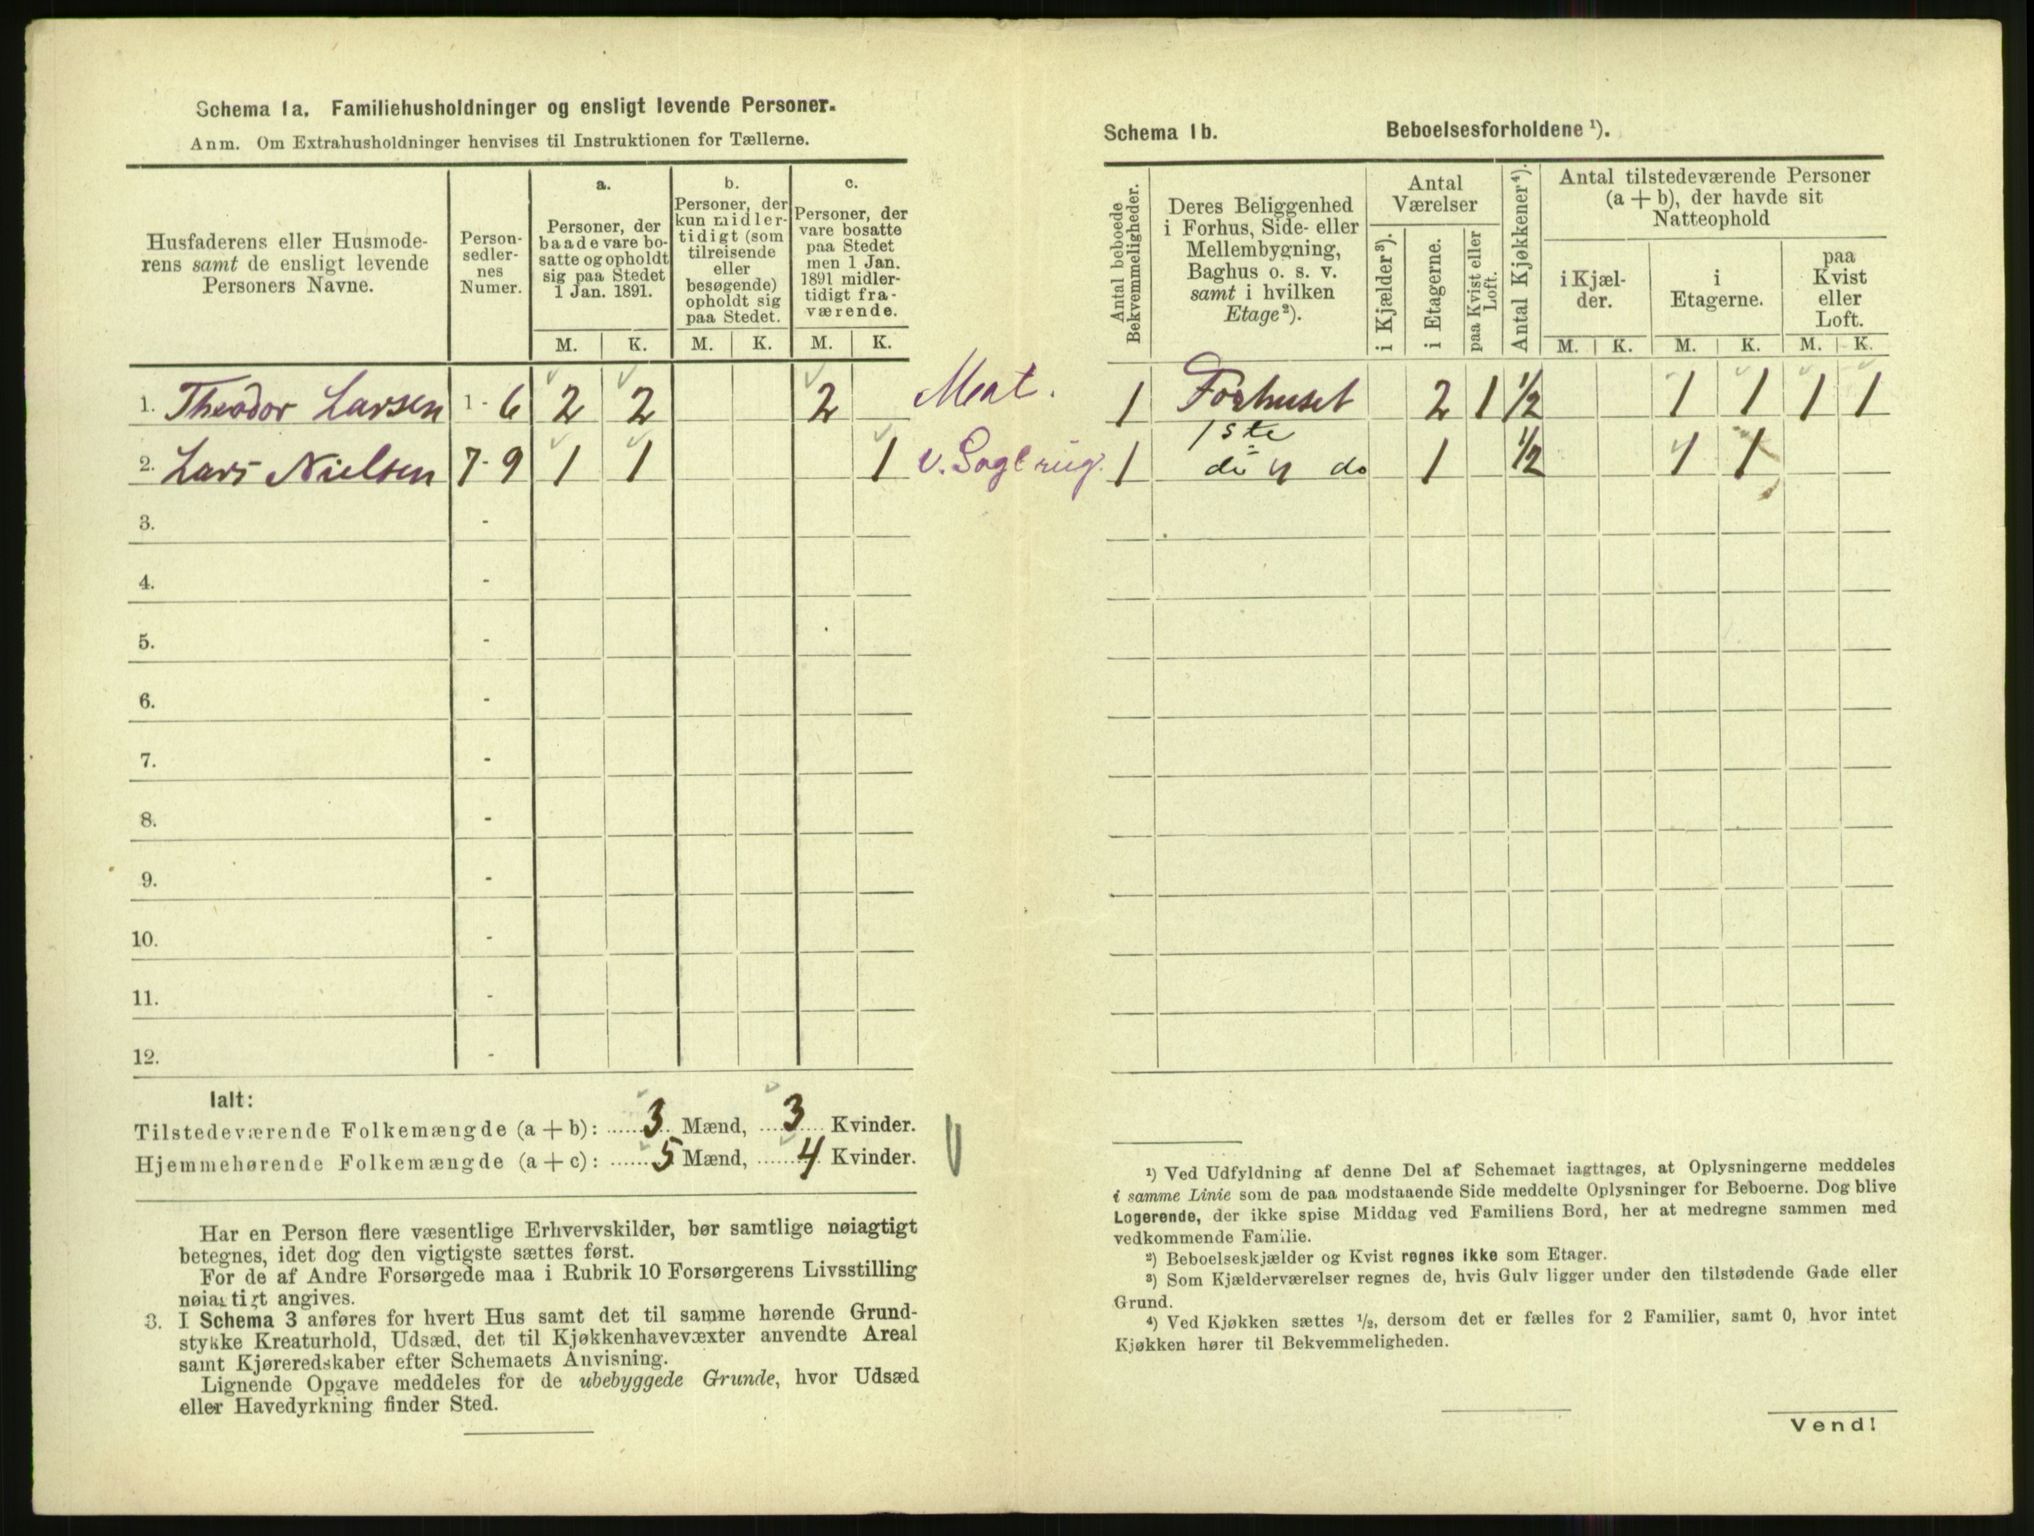 Schema 1a. Familiehusholdninger og ensligt levende Personer.
Anm. Om Extrahusholdninger henvises til Instruktionen for Tællerne.
Husfaderens eller Husmode-
rens samt de ensligt levende
Personers Navne.
Person-
sedler-
nes
Numer.
a.
Personer, der
baade vare bo-
satte og opholdt
sig paa Stedet
1 Jan. 1891.
b.
Personer, der
kun midler-
tidigt (som
tilreisende
eller
besøgende)
opholdt sig
paa Stedet.
c.
Personer, der
vare bosatte
paa Stedet
men 1 Jan.
1891 midler-
tidigt fra-
værende.
M. K. M. K. M. K.
1. Theodor Larsen 1 - 6 2 2 2
2. Lars Nielsen 7 - 9 1 1 1
3. -
4. -
5. -
6. -
7. -
8. -
9. -
10. -
11. -
12. -
Ialt:
Tilstedeværende Folkemængde (a + b): 3 Mænd, 3 Kvinder.
Hjemmehørende Folkemængde (a + c): 5 Mænd, 4 Kvinder.
Har en Person flere væsentlige Erhvervskilder, bør samtlige nøiagtigt
betegnes, idet dog den vigtigste sættes først.
For de af Andre Forsørgede maa i Rubrik 10 Forsørgerens Livsstilling
nøiagtigt angives.
3. I Schema 3 anføres for hvert Hus samt det til samme hørende Grund-
stykke Kreaturhold, Udsæd, det til Kjøkkenhavevæxter anvendte Areal
samt Kjøreredskaber efter Schemaets Anvisning.
Lignende Opgave meddeles for de ubebyggede Grunde, hvor Udsæd
eller Havedyrkning finder Sted.
Schema 1b. Beboelsesforholdene ¹).
Antal beboede
Bekvemmeligheder.
Deres Beliggenhed
i Forhus, Side- eller
Mellembygning,
Baghus o. s. v.
samt i hvilken
Etage²).
Antal
Værelser
i Kjælder³).
i Etagerne.
paa Kvist eller
Loft.
Antal Kjøkkener⁴).
Antal tilstedeværende Personer
(a + b), der havde sit
Natteophold
i Kjæl-
der.
i
Etagerne.
paa
Kvist
eller
Loft.
M. K. M. K. M. K.
1 Forhuset 2 1 1/2 1 1 1 1
1ste
1 do 1 1/2 1 1
¹) Ved Udfyldning af denne Del af Schemaet iagttages, at Oplysningerne meddeles
i samme Linie som de paa modstaaende Side meddelte Oplysninger for Beboerne. Dog blive
Logerende, der ikke spise Middag ved Familiens Bord, her at medregne sammen med
vedkommende Familie.
²) Beboelseskjælder og Kvist regnes ikke som Etager.
³) Som Kjælderværelser regnes de, hvis Gulv ligger under den tilstødende Gade eller
Grund.
⁴) Ved Kjøkken sættes ½, dersom det er fælles for 2 Familier, samt 0, hvor intet
Kjøkken hører til Bekvemmeligheden.
Vend!